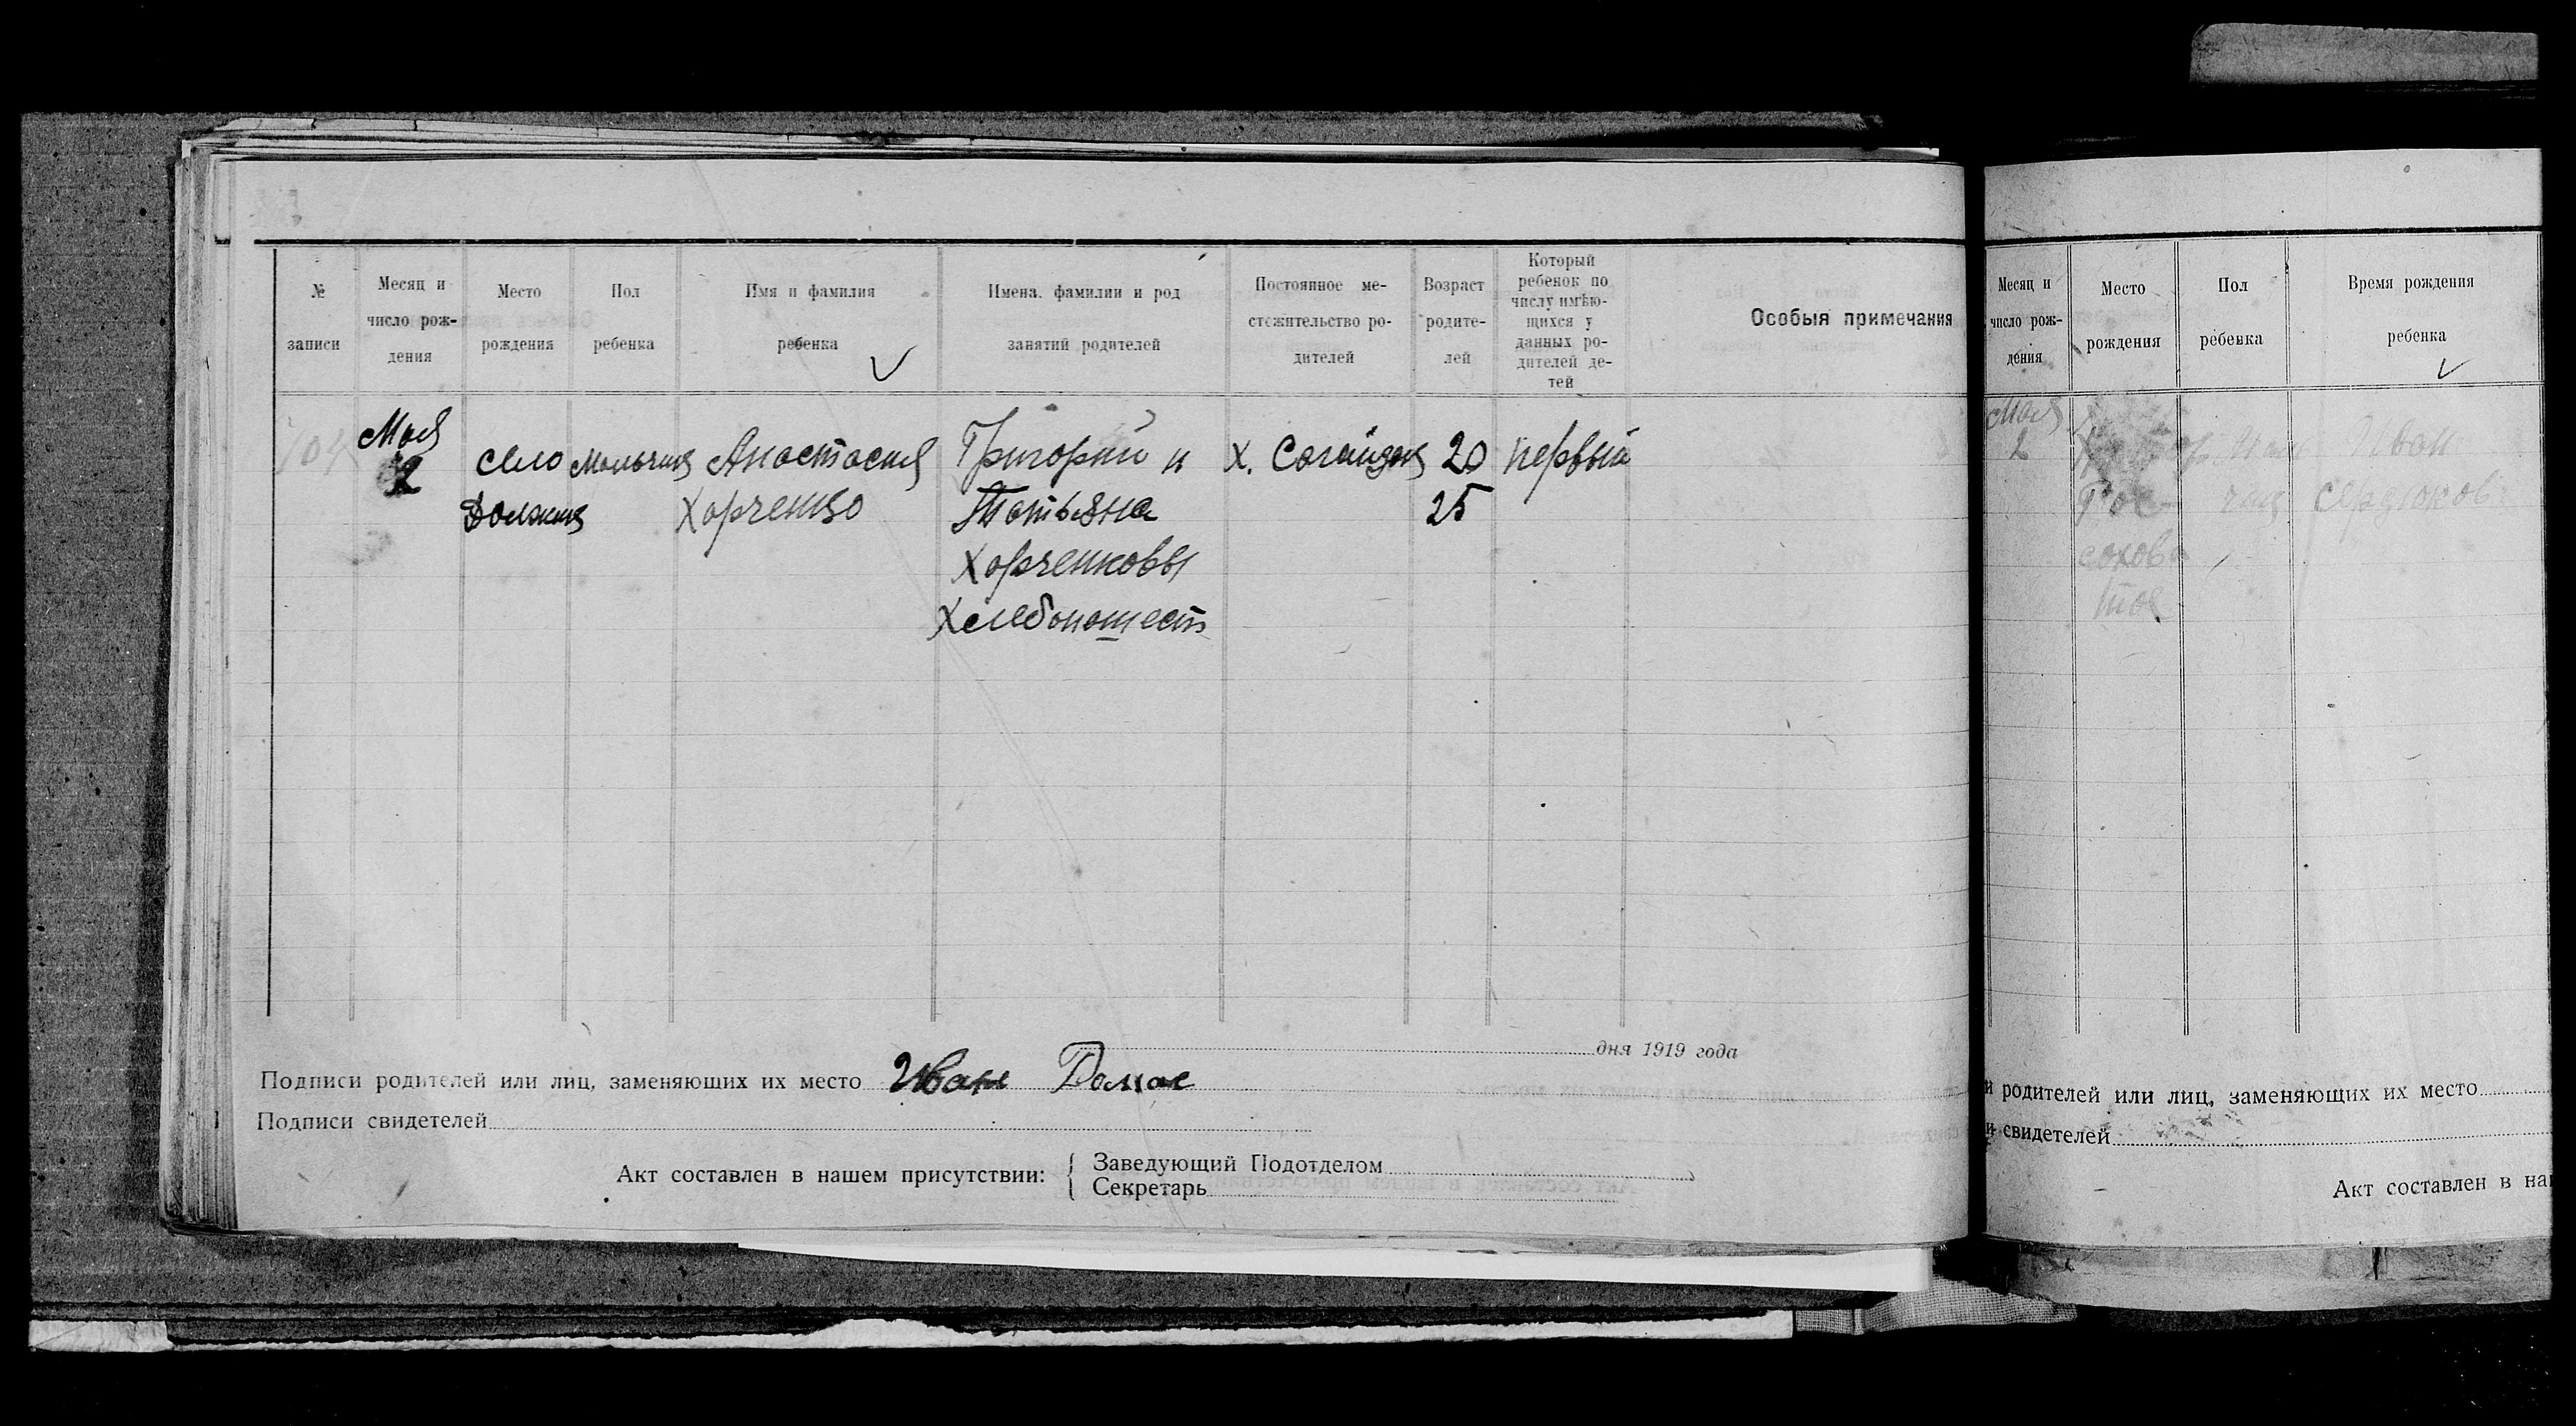 № записи
Месяц и число рож-дения
Место рождения
Пол ребенка
Имя и фамилия ребенка
Имена, фамилии и род занятий родителей
Постоянное ме-стожительство ро-дителей
Возраст родите-лей
Который ребенок по числу имѣю-щихся у данных ро-дителей де-тей
Особыя примечания
Мая
2
село
Анастасия
Харченко
Григорий и
Татьяна
Харченковы
х.
20
25
первый
дня 1919 года
Подписи родителей или лиц, заменяющих их место Иван
Подписи свидетелей
Акт составлен в нашем присутствии:
Заведующий Подотделом
Секретарь
Месяц и число рож-дения
Место рождения
Пол ребенка
Время рождения ребенка
Мая
2
Иван
и родителей или лиц, заменяющих их место
и свидетелей
Акт составлен в на